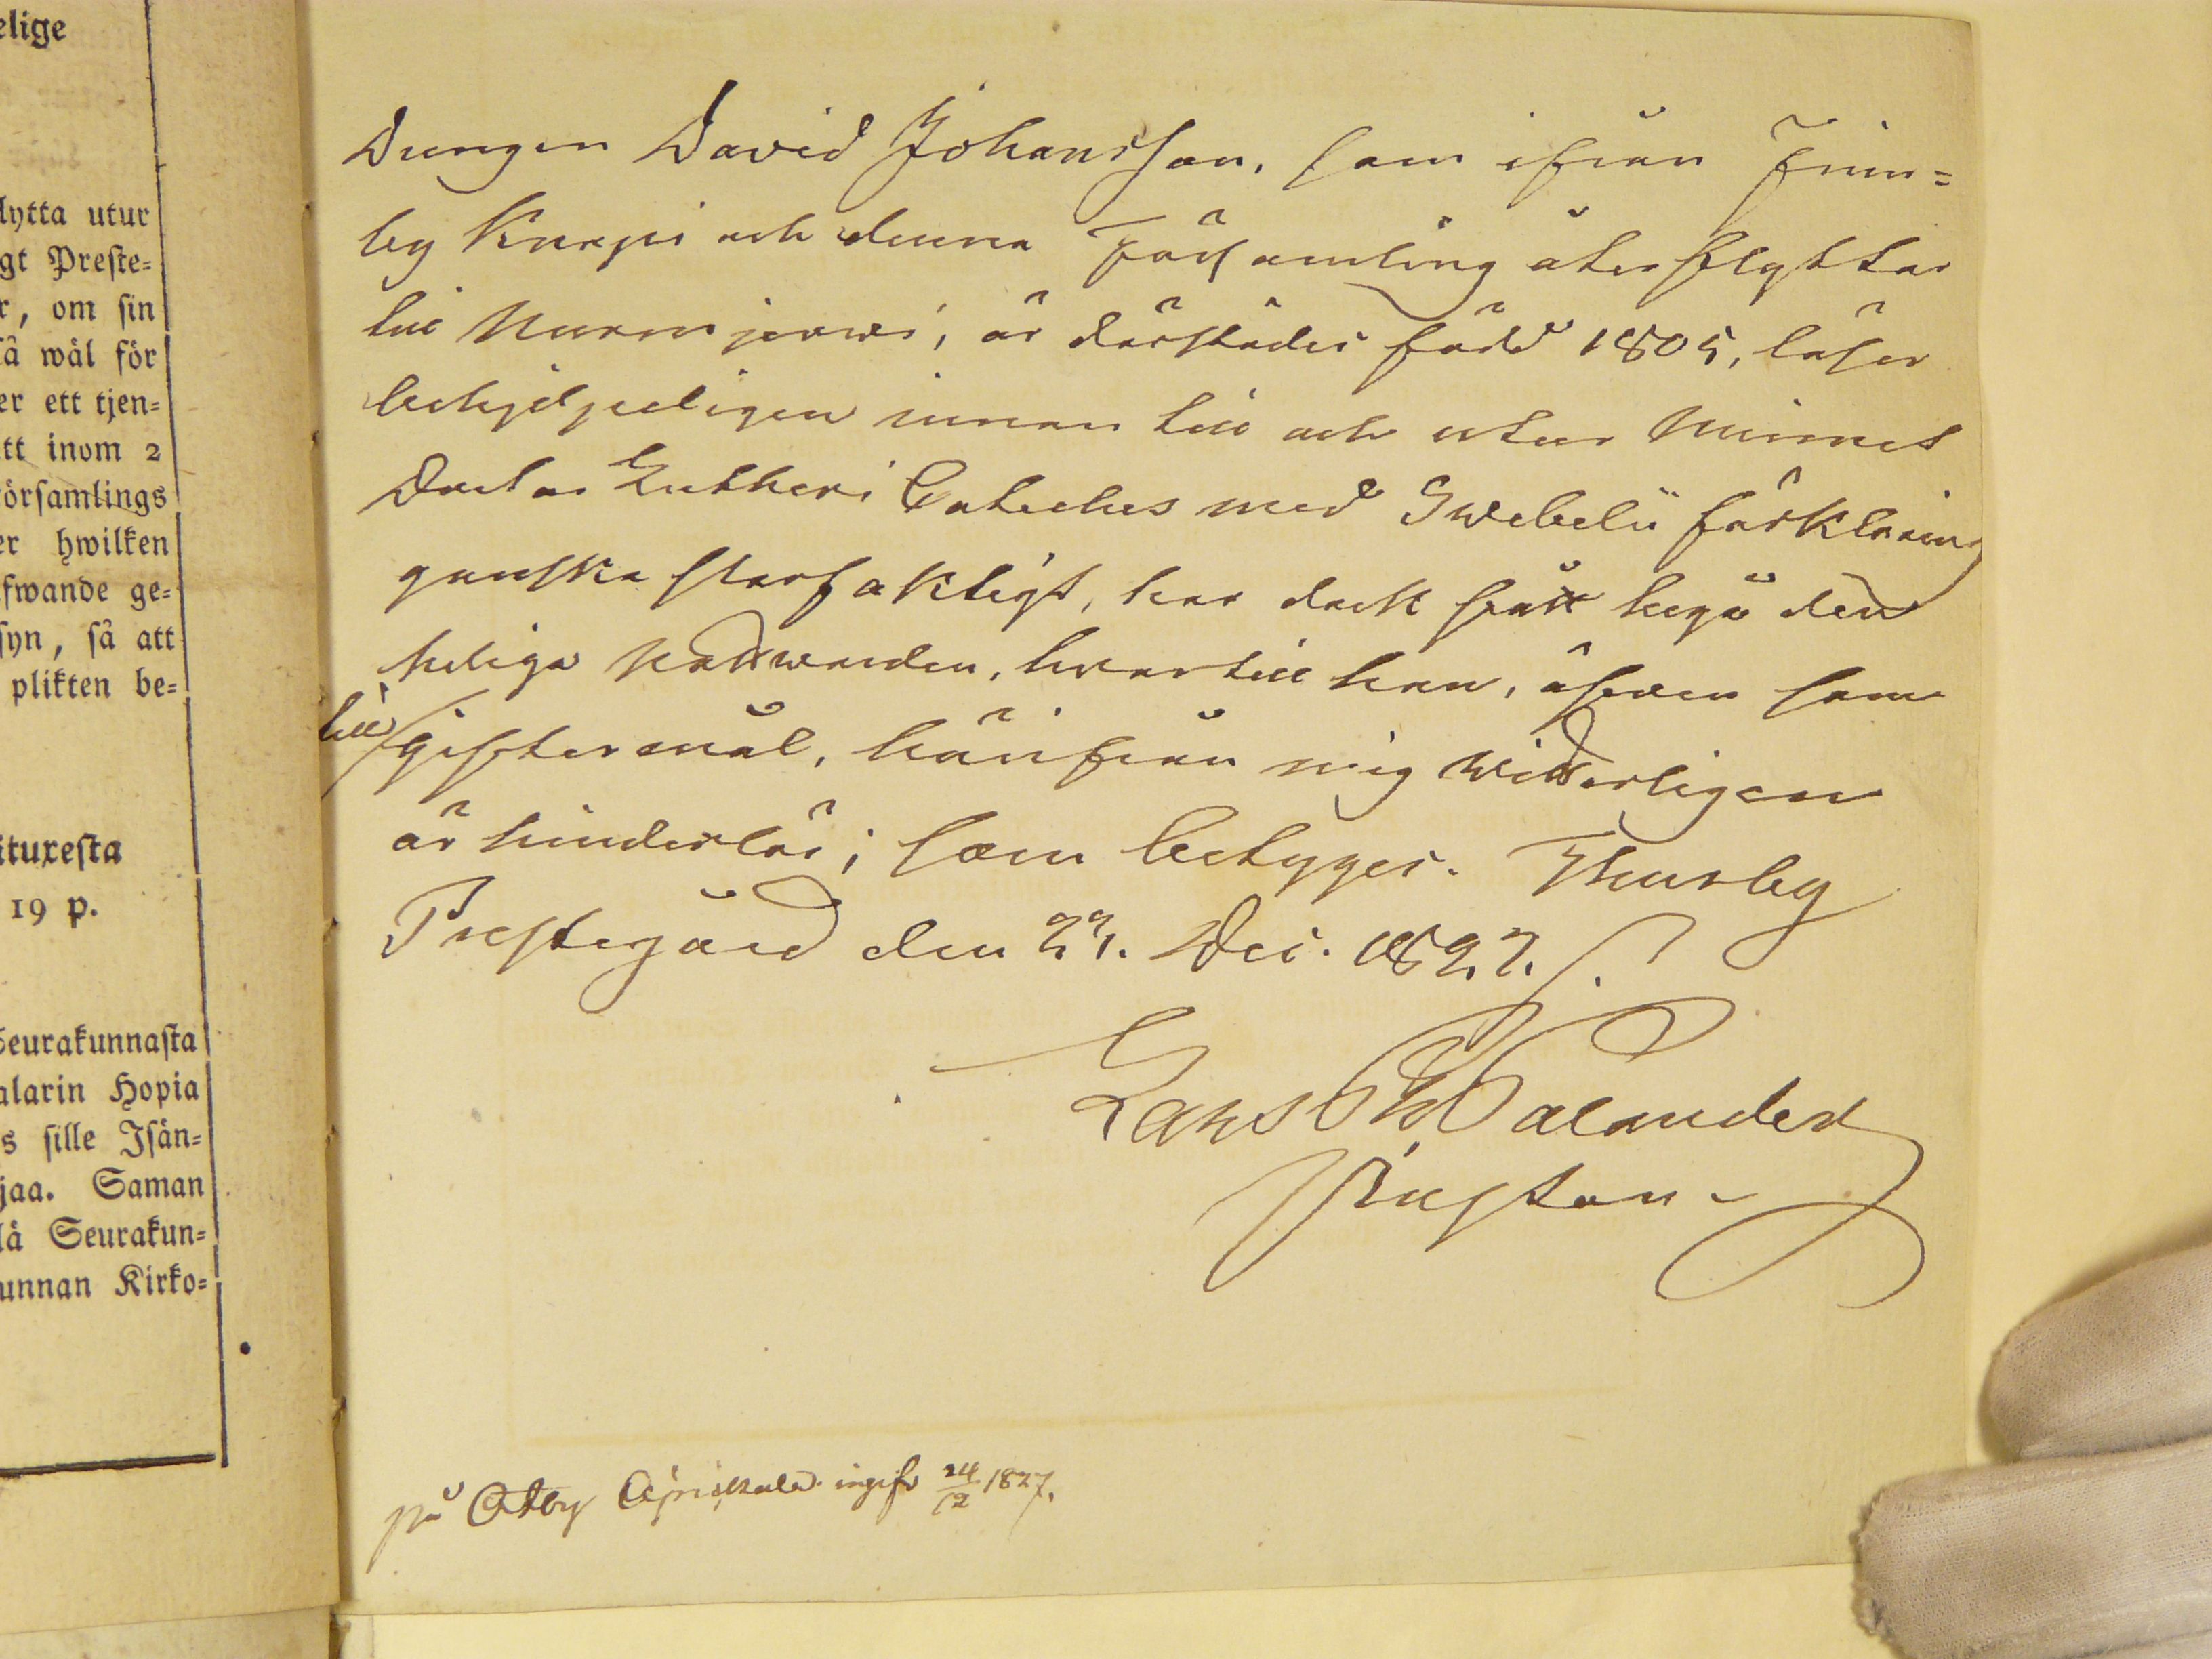 elige
lytta utur
gt Preste=
r, om sin
så wäl för
er ett tjen=
tt inom 2
örsamlings
er hwilken
fwande ge=
syn, så att
plikten be=
ituxesta
19 p.
Seurakunnasta
alarin Hopia
s sille Isän=
jaa. Saman
lä Seurakun=
unnan Kirko=
Drengen David Johansson, som ifrån Finn=
by Knapi och denna Församling återflyttar
till Nurmijerwi, är därstädes född 1805, läser
behjelpeligen innan till och utur Minnet
Doctor Lutheri Cateches med Swebelii förklaring
ganska slarfaktigt, har dock fått begå den
heliga Nattwarden, hvartill han, äfven som
till giftermål, hänifrån mig witterligen
är hinderlös; som betyges. Thusby
Prestegård den 23. Dec. 1827.
Lars Palander
Pastor
på Åtby ingifv 24/12 1827.